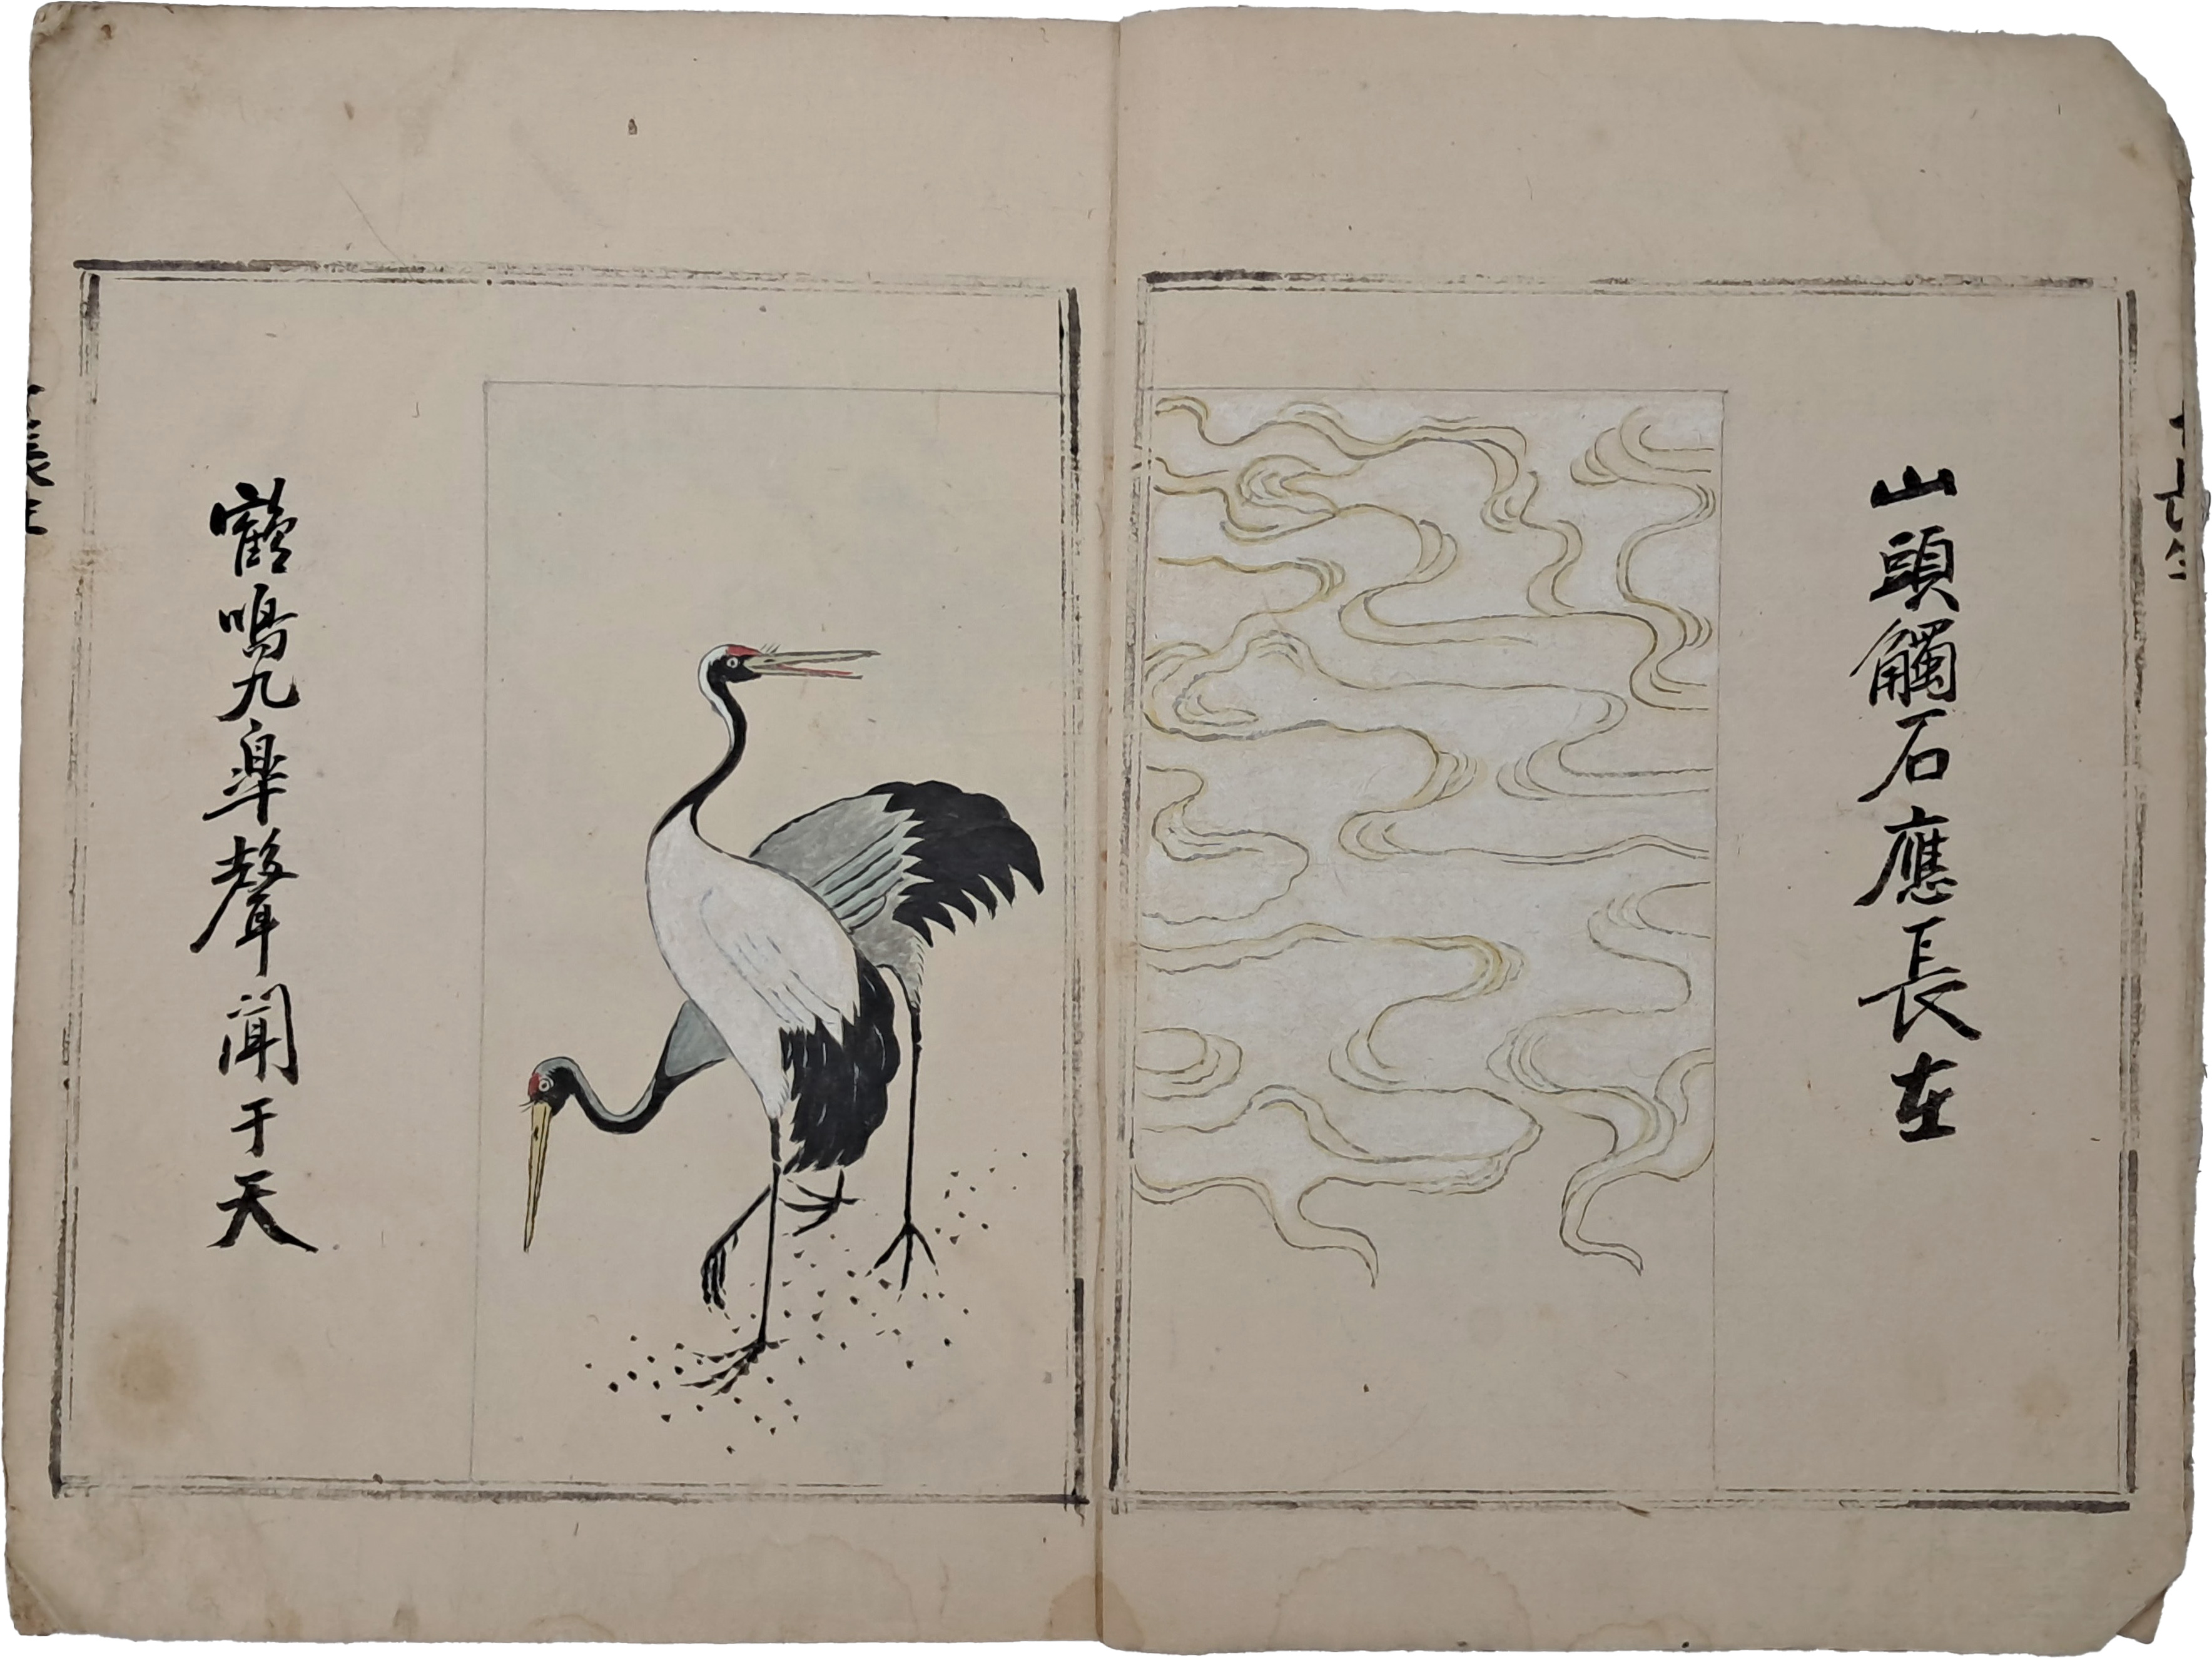 山頭觸石應長在
鶴鳴九皐聲聞于天